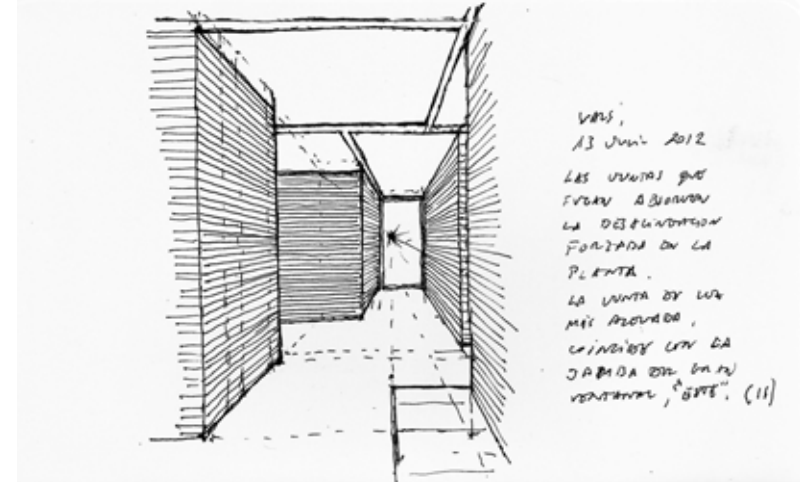 VALS,
13 JULIO 2012
LAS JUNTAS QUE
FUGAN ABSORVEN
LA DESALINEACION
FORZADA EN LA
PLANTA.
LA JUNTA DE LUZ
MÁS ALEJADA,
COINCIDE CON LA
JAMBA DEL GRAN
VENTANAL, "ESTE". (15)